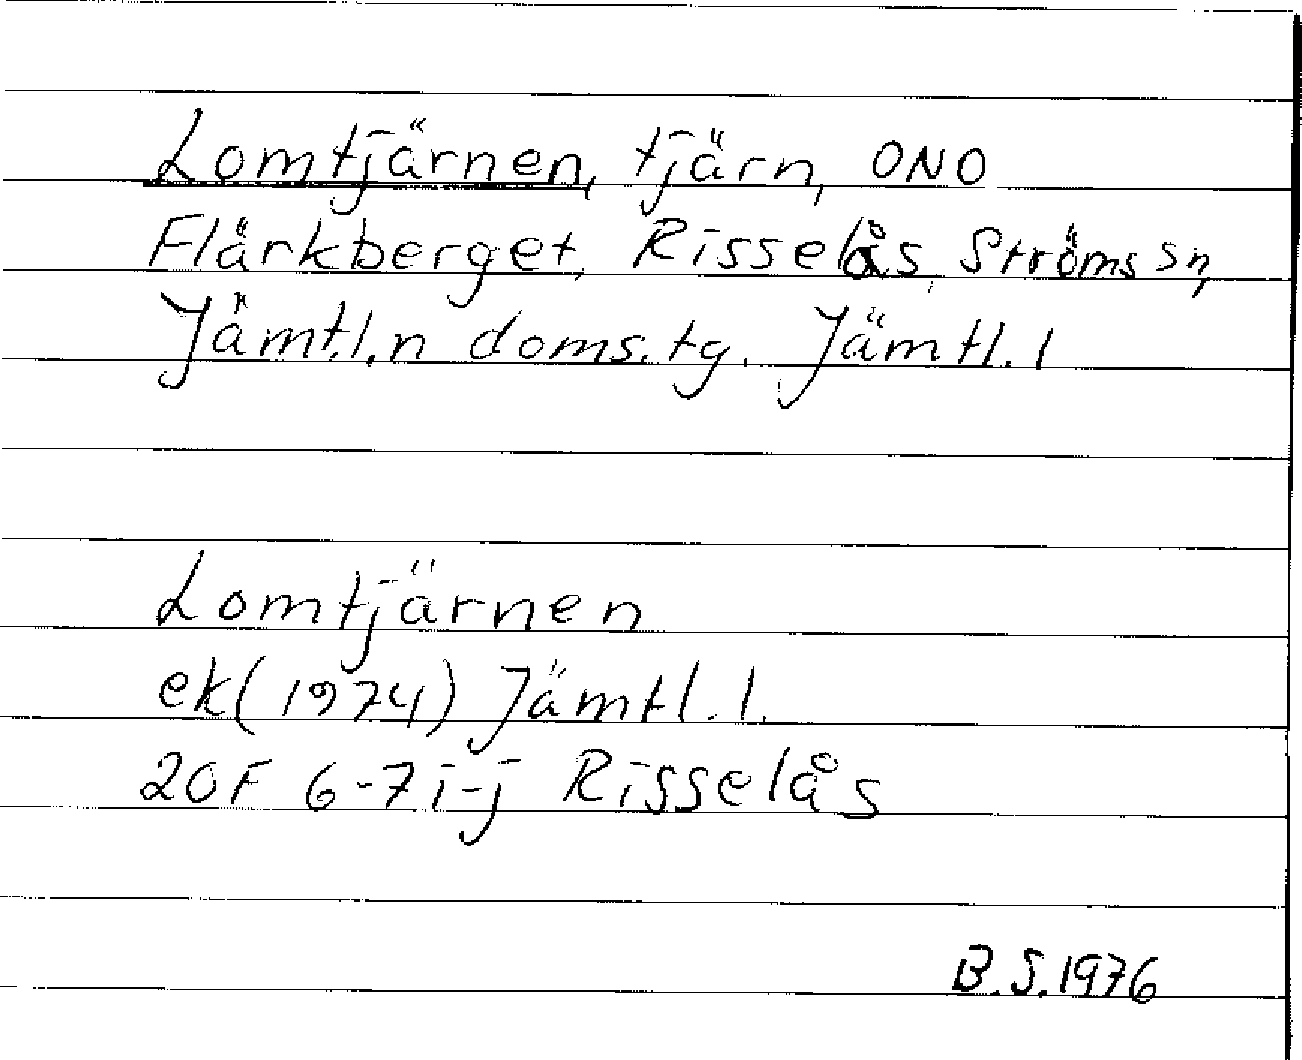 Lomtjärnen, tjärn, ONO
Flärkberget, Risselås, Ströms sn,
Jämtl.l.n doms.tg. Jämtl.l
Lomtjärnen
ek(1974) Jämtl.l.
20F 6-7i-j Risselås
B.S.1976